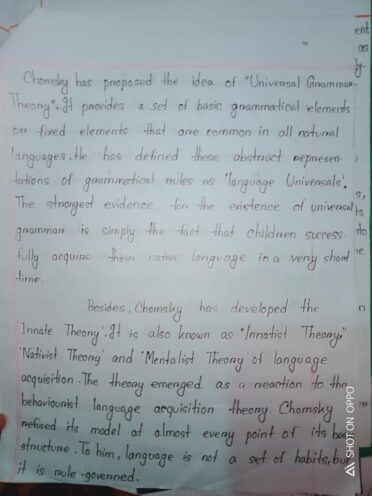 Chomsky has proposed the idea of "Universal Grammar
Theory". It provides a set of basic grammatical elements
or fixed elements that are common in all natural
languages. He has defined these abstract represen-
tations of grammatical rules as 'language Universals'.
The strongest evidence for the existence of universal
grammar is simply the fact that children success-
fully acquire their native language in a very short
time.
Besides, Chomsky has developed the
'Innate Theory'. It is also known as "Innatist Theory,"
'Nativist Theory' and 'Mentalist Theory' of language
acquisition. The theory emerged as a reaction to the
behaviourist language acquisition theory. Chomsky
refused its model at almost every point of its
structure. To him, language is not a set of habits, but
it is rule-governed.
ent
as
SHOT ON OPPO